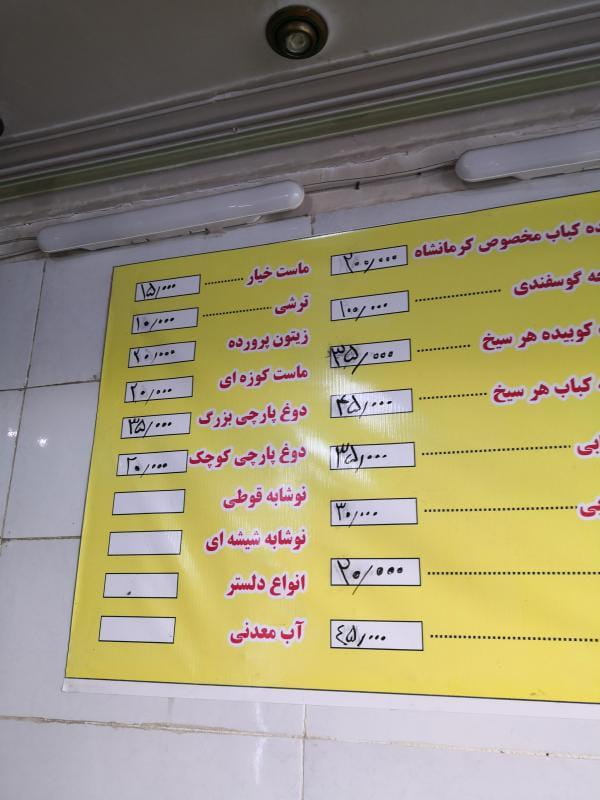 ده کباب مخصوص کرمانشاه ۲۰۰/۰۰۰
گوسفندی ۱۰۰/۰۰۰
کوبیده هر سیخ ۳۵/۰۰۰
کباب هر سیخ ۴۵/۰۰۰
۳۵/۰۰۰
۳۰/۰۰۰
۲۰/۰۰۰
۴۵/۰۰۰
ماست خیار ۱۵/۰۰۰
ترشی ۱۰/۰۰۰
زیتون پرورده ۲۰/۰۰۰
ماست کوزه ای ۲۰/۰۰۰
دوغ پارچی بزرگ ۳۵/۰۰۰
دوغ پارچی کوچک ۲۰/۰۰۰
نوشابه قوطی
نوشابه شیشه ای
انواع دلستر
آب معدنی